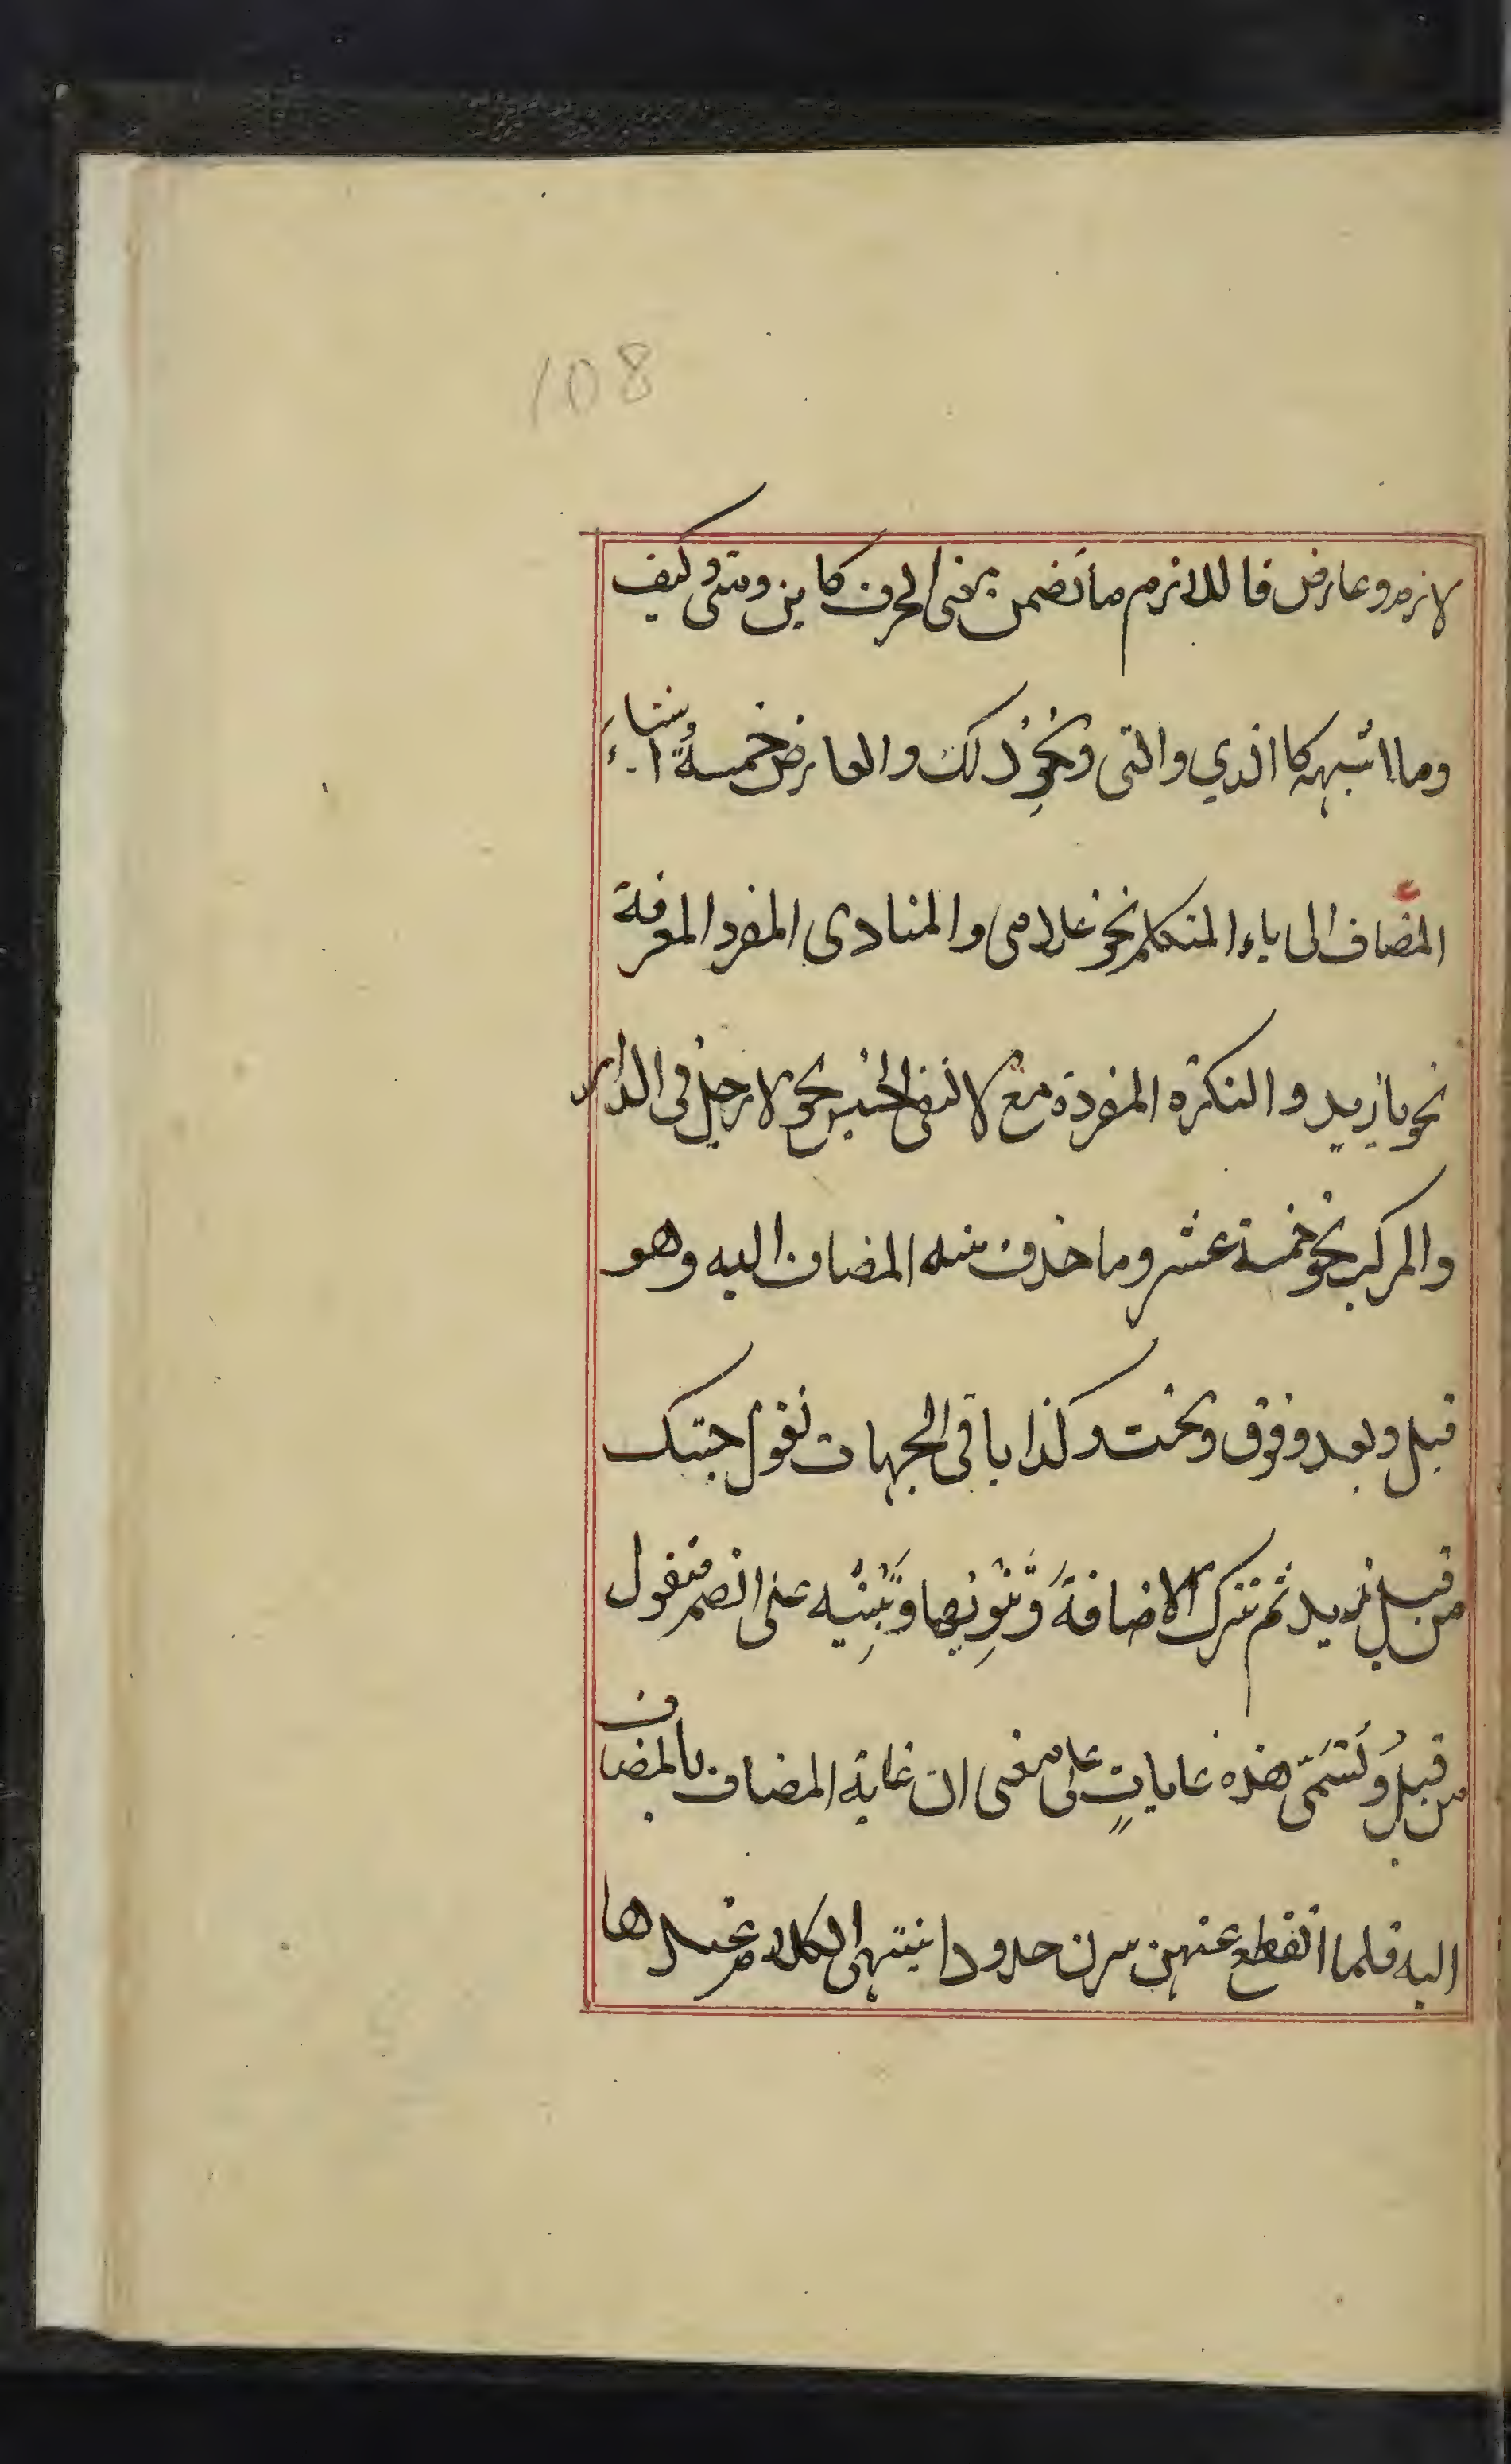 108
لازم وعارض فاللازم ما تضمن معنى الحرف كاين ومتى وكيف
وما اشبهه كالذي والتى ونحو ذلك والعارض خمسةُ اشياءَ
المضاف الى ياء المتكلم نحو غلامى والمنادى المفرد المعرفة
نحو يا زيد والنكرة المفردة مع لا لنفى الجنس نحو لا رجل فى الدار
والمركب نحو خمسة عشر وما حذف منه المضاف اليه وهو
قبل وبعد وفوق وتحت وكذا باقى الجهات تقول جئتك
من قبل زيد ثم تترك الاضافةَ وتَنْوِيها وتَبْنِيه على الضم فتقول
من قبلُ وتُسَمّى هذه غاياتٍ على معنى ان غاية المضاف بالمضاف
اليه فلما انقطع عنهن صرن حدودا ينتهى الكلام عندها